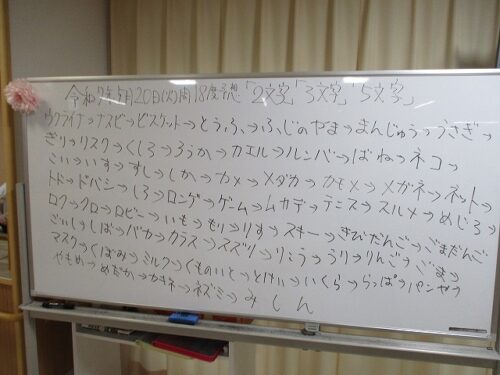 令和7年5月20日(火)雨18度予想「2文字」「3文字」「5文字」
ウクライナ→ナスビ→ビスケット→とうふ→ふじのやま→まんじゅう→うさぎ→
ぎり→リスク→くしろ→ろうか→カエル→ルンバ→ばね→ネコ→
こい→いす→すし→しか→カメ→メダカ→カモメ→メガネ→ネット→
トド→ドバシ→しろ→ロンゲ→ゲーム→ムササビ→テニス→スルメ→めじろ→
ロク→クロ→ロビー→いも→もり→りす→スキー→きびだんご→ごまだんご
ごいし→しば→バカ→カラス→スズリ→りこう→うり→りんご→ごま→
マスク→くぼみ→ミルク→くものいと→とけい→いくら→らっぱ→パンや→
やもめ→めだか→カキネ→ネズミ→みしん